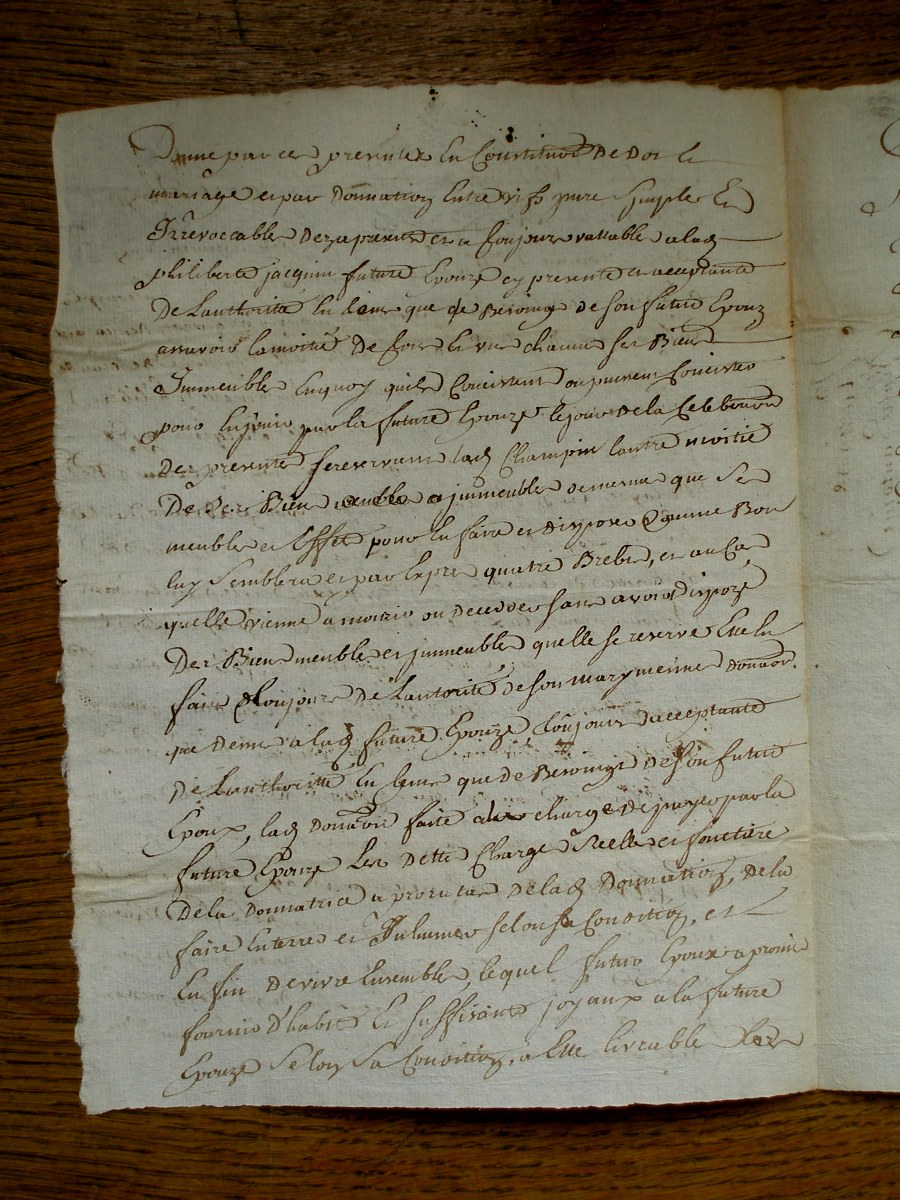 Donne par ces presentes En Constitution De Dot Et
mariage et par Donnation Entre vifs pure simple Et
Irrevoccable Dez apresent et a toujours vallable a lad
philiberte jacquin future Epouze cy presente et acceptante
De Lauthorité En tems que de Besoing de son futur Epoux
assavoir la moitié De tous Et un chacuns ses Biens
Immeubles En quoy quils Consistent ou puissent Consister
pour En jouir par la future Epouze le jour De la Celebration
Des presentes se reservant lad Champin lautre moitié
De ses Biens immeubles de meme que ses
meubles et Effets pour En faire et Disposer Comme Bon
luy Semblera et par Exprès quatre Brebis, et au Cas
quelle vienne a mourir ou deceder sans avoir dispozé
Des Biens meubles et immeubles quelle se reserve Elle En
fait toujours De Lautorité de son mary meme donnation
que Dessus a lad future Epouze toujours acceptante
De Lauthorité En tems que de Besoing de son futur
Epoux, lad Donnation faite aux charges De payer par la
future Epouze Les Dettes Charges Reelles et fonciere
De la Donnatrice a prorata De lad Donnation, De la
faire Enterrer et Inhumer selon sa Condition, et
Enfin De vivre Ensemble, lequel futur Epoux a promis
fournir d'habits Et suffisants joyaux a la future
Epouze selon sa Condition, a Elle livrable